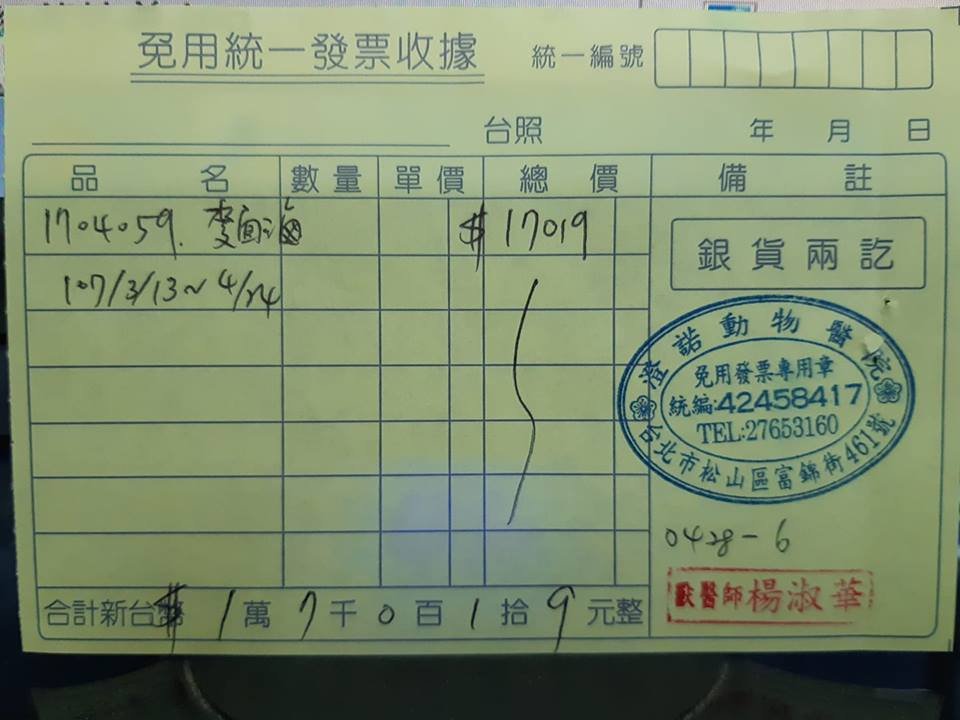 免用統一發票收據
統一編號
台照 年 月 日
品名 數量 單價 總價 備註
1704059. $ 17019
107/3/13~4/24
銀貨兩訖
澄諾動物醫院
免用發票專用章
統編:42458417
TEL:27653160
台北市松山區富錦街461號
0428-6
獸醫師楊淑華
合計新台幣 $ 1萬7千0百1拾9元整